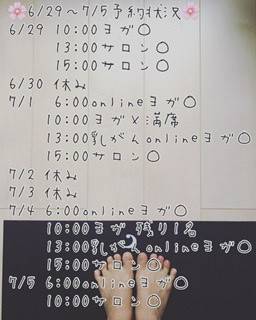 🌸6/29〜7/5予約状況🌸
6/29 10:00ヨガ〇
13:00サロン〇
15:00サロン〇
6/30 休み
7/1 6:00onlineヨガ〇
10:00ヨガ×満席
13:00乳がんonlineヨガ〇
15:00サロン〇
7/2 休み
7/3 休み
7/4 6:00onlineヨガ〇
10:00ヨガ 残り1名
13:00乳がんonlineヨガ〇
15:00サロン〇
7/5 6:00onlineヨガ〇
10:00サロン〇